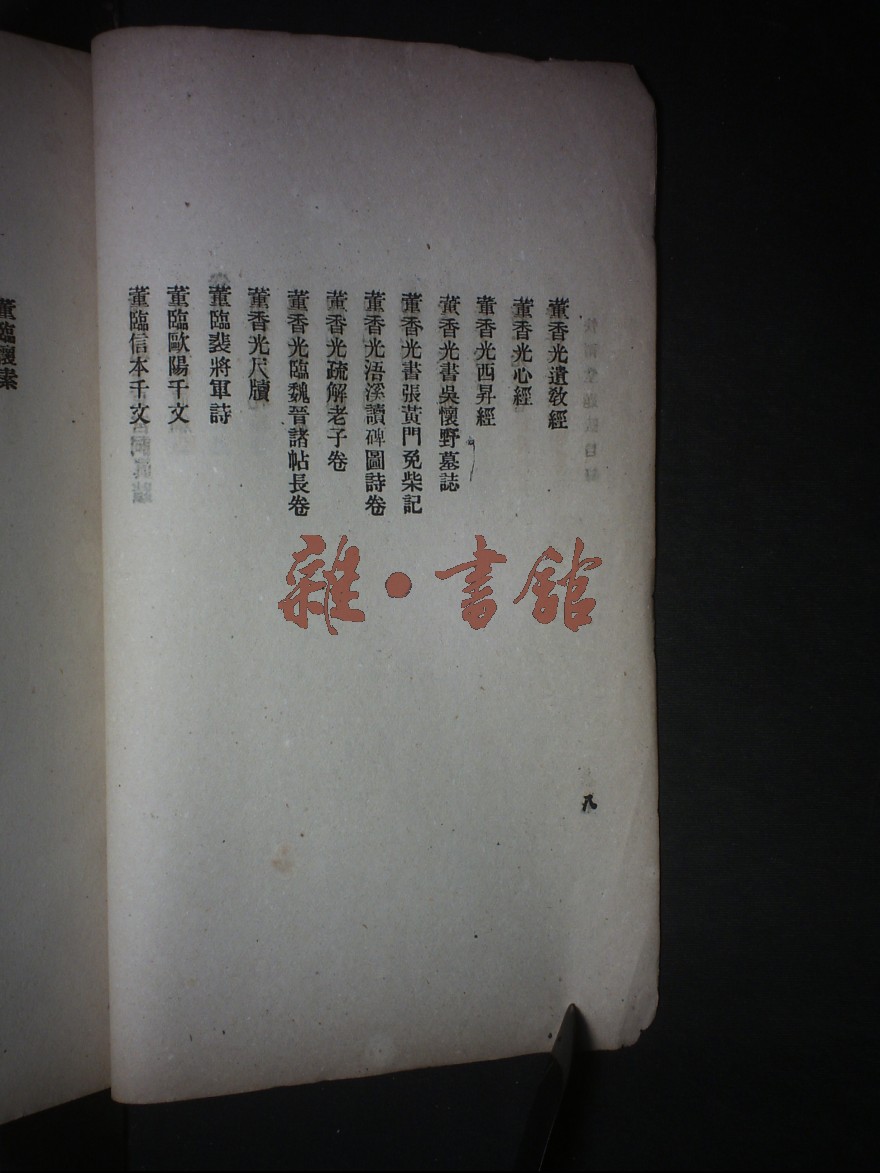 董香光遺敎經
董香光心經
董香光西昇經
董香光書吳懷野墓誌
董香光書張黃門免柴記
董香光浯溪讀碑圖詩卷
董香光疏解老子卷
董香光臨魏晉諸帖長卷
董香光尺牘
董臨裴將軍詩
董臨歐陽千文
董臨信本千文
八
董臨懷素
雜·書館